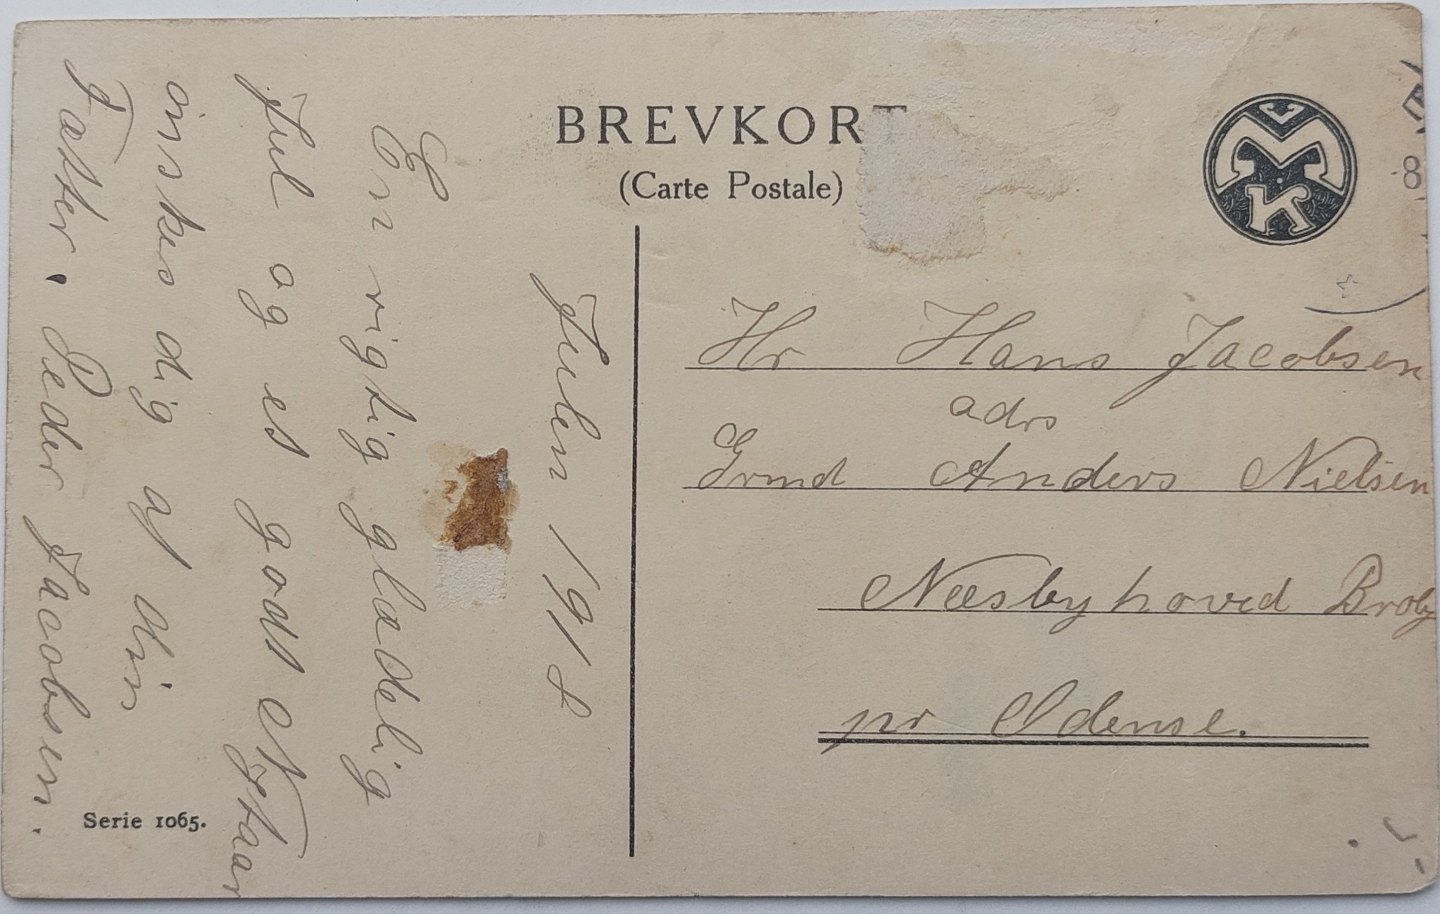 BREVKORT
(Carte Postale)
MK
8
Julen 1918
En rigtig glædelig
Jul og et godt Nytaar
önskes dig af din
Fætter. Peder Jacobsen.
Serie 1065.
Hr Hans Jacobsen
adrs
Grmd Anders Nielsen
Næsbyhoved Broby
pr Odense.